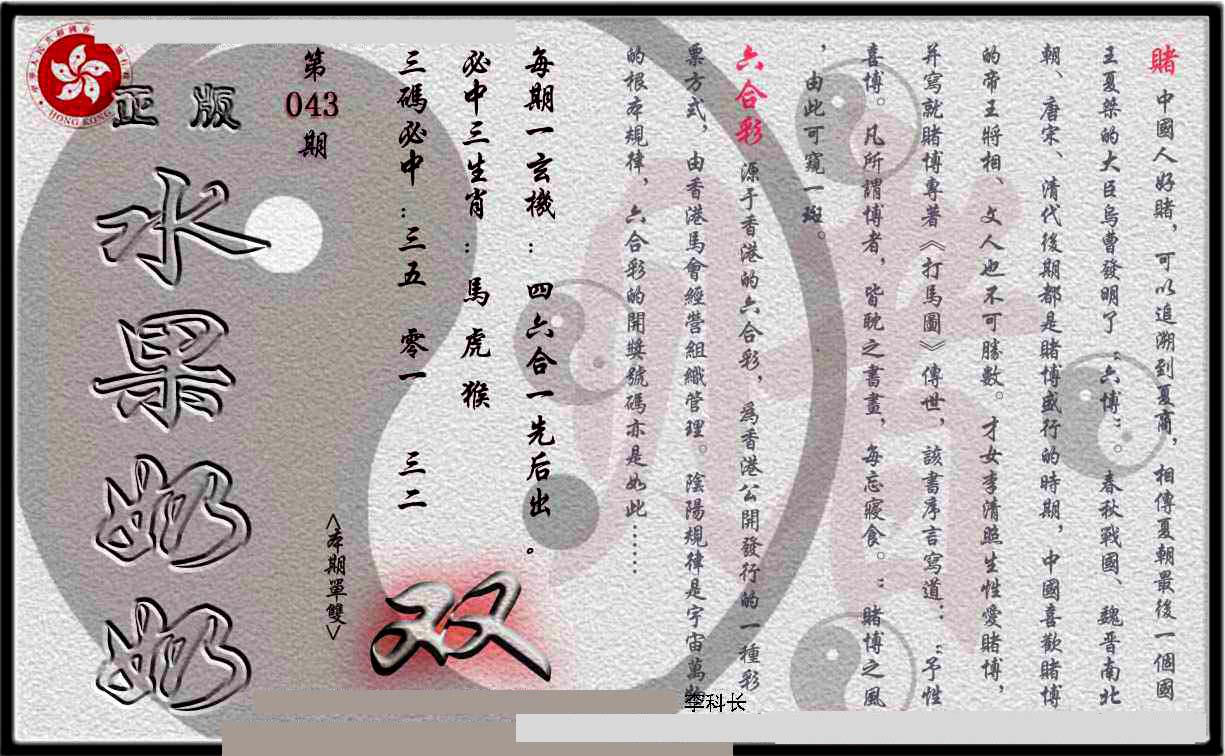 賭 中國人好賭，可以追溯到夏商，相傳夏朝最後一個國
王夏桀的大臣烏曹發明了“六博”。春秋戰國、魏晋南北
朝、唐宋、清代後期都是賭博盛行的時期，中國喜歡賭博
的帝王將相、文人也不可勝數。才女李清照生性愛賭博，
并寫就賭博專著《打馬圖》傳世，該書序言寫道：“予性
喜博。凡所謂博者，皆耽之書畫，每忘寢食。”賭博之風
，由此可窺一斑。
六合彩 源于香港的六合彩，爲香港公開發行的一種彩
票方式，由香港馬會經營組織管理。陰陽規律是宇宙萬物
的根本規律，六合彩的開獎號碼亦是如此……
每期一玄機：四六合一先后出。
必中三生肖：馬虎猴
三碼必中：三五 零一 三二
<本期單雙>
双
第
043
期
正版
水果奶奶
HONG KONG
李科长